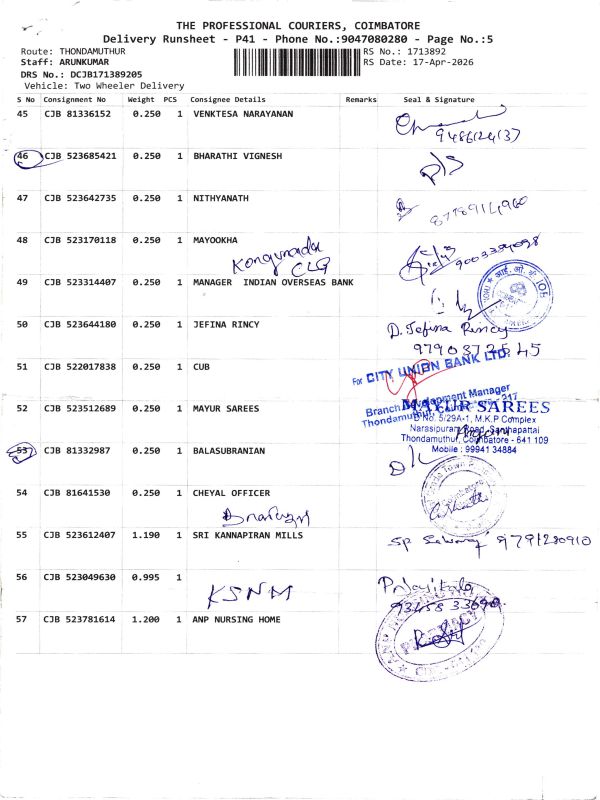 THE PROFESSIONAL COURIERS, COIMBATORE
Delivery Runsheet - P41 - Phone No.:9047080280 - Page No.:5
Route: THONDAMUTHUR RS No.: 1713892
Staff: ARUNKUMAR RS Date: 17-Apr-2026
DRS No.: DCJB171389205
Vehicle: Two Wheeler Delivery
S No Consignment No Weight PCS Consignee Details Remarks Seal & Signature
45 CJB 81336152 0.250 1 VENKTESA NARAYANAN
9486124137
46 CJB 523685421 0.250 1 BHARATHI VIGNESH
47 CJB 523642735 0.250 1 NITHYANATH
48 CJB 523170118 0.250 1 MAYOOKHA
Kongunadu
CLG
9003394098
49 CJB 523314407 0.250 1 MANAGER INDIAN OVERSEAS BANK
50 CJB 523644180 0.250 1 JEFINA RINCY
D. Jefina Rincy
9790372545
51 CJB 522017838 0.250 1 CUB
For CITY UNION BANK LTD.
Branch Development Manager
52 CJB 523512689 0.250 1 MAYUR SAREES
MAYUR SAREES
D No. 5/29A-1, M.K.P Complex
Narasipuram Road, Santhapattai
Thondamuthur, Coimbatore - 641 109
Mobile : 99941 34884
53 CJB 81332987 0.250 1 BALASUBRANIAN
54 CJB 81641530 0.250 1 CHEYAL OFFICER
55 CJB 523612407 1.190 1 SRI KANNAPIRAN MILLS
9791280910
56 CJB 523049630 0.995 1
KSNM
93458 33690
57 CJB 523781614 1.200 1 ANP NURSING HOME